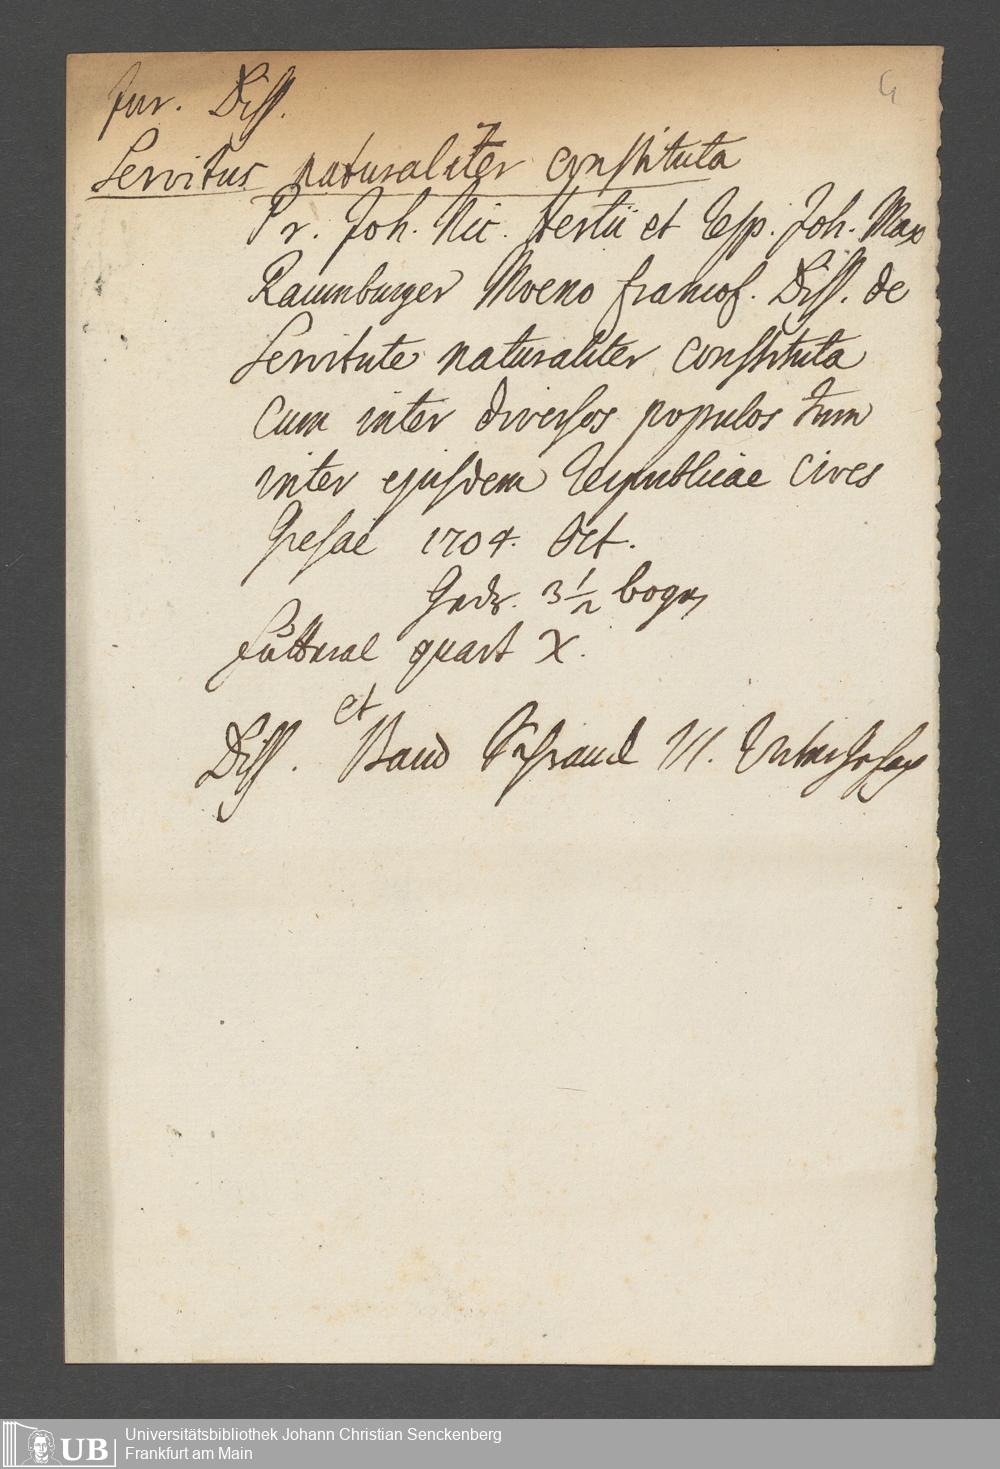 Jur. Diss.
Servitus naturaliter constituta
Pr. Joh. Nic. Hertii et Resp. Joh. Max
Raumburger Moeno francof. Diss. de
Servitute naturaliter constituta
cum inter diversos populos tum
inter ejusdem Reipublicae cives
Gresae 1704. Oct.
Gedr. 3 1/2 bogen
futteral quart X.
et
Diss. Band
Universitätsbibliothek Johann Christian Senckenberg
Frankfurt am Main
UB